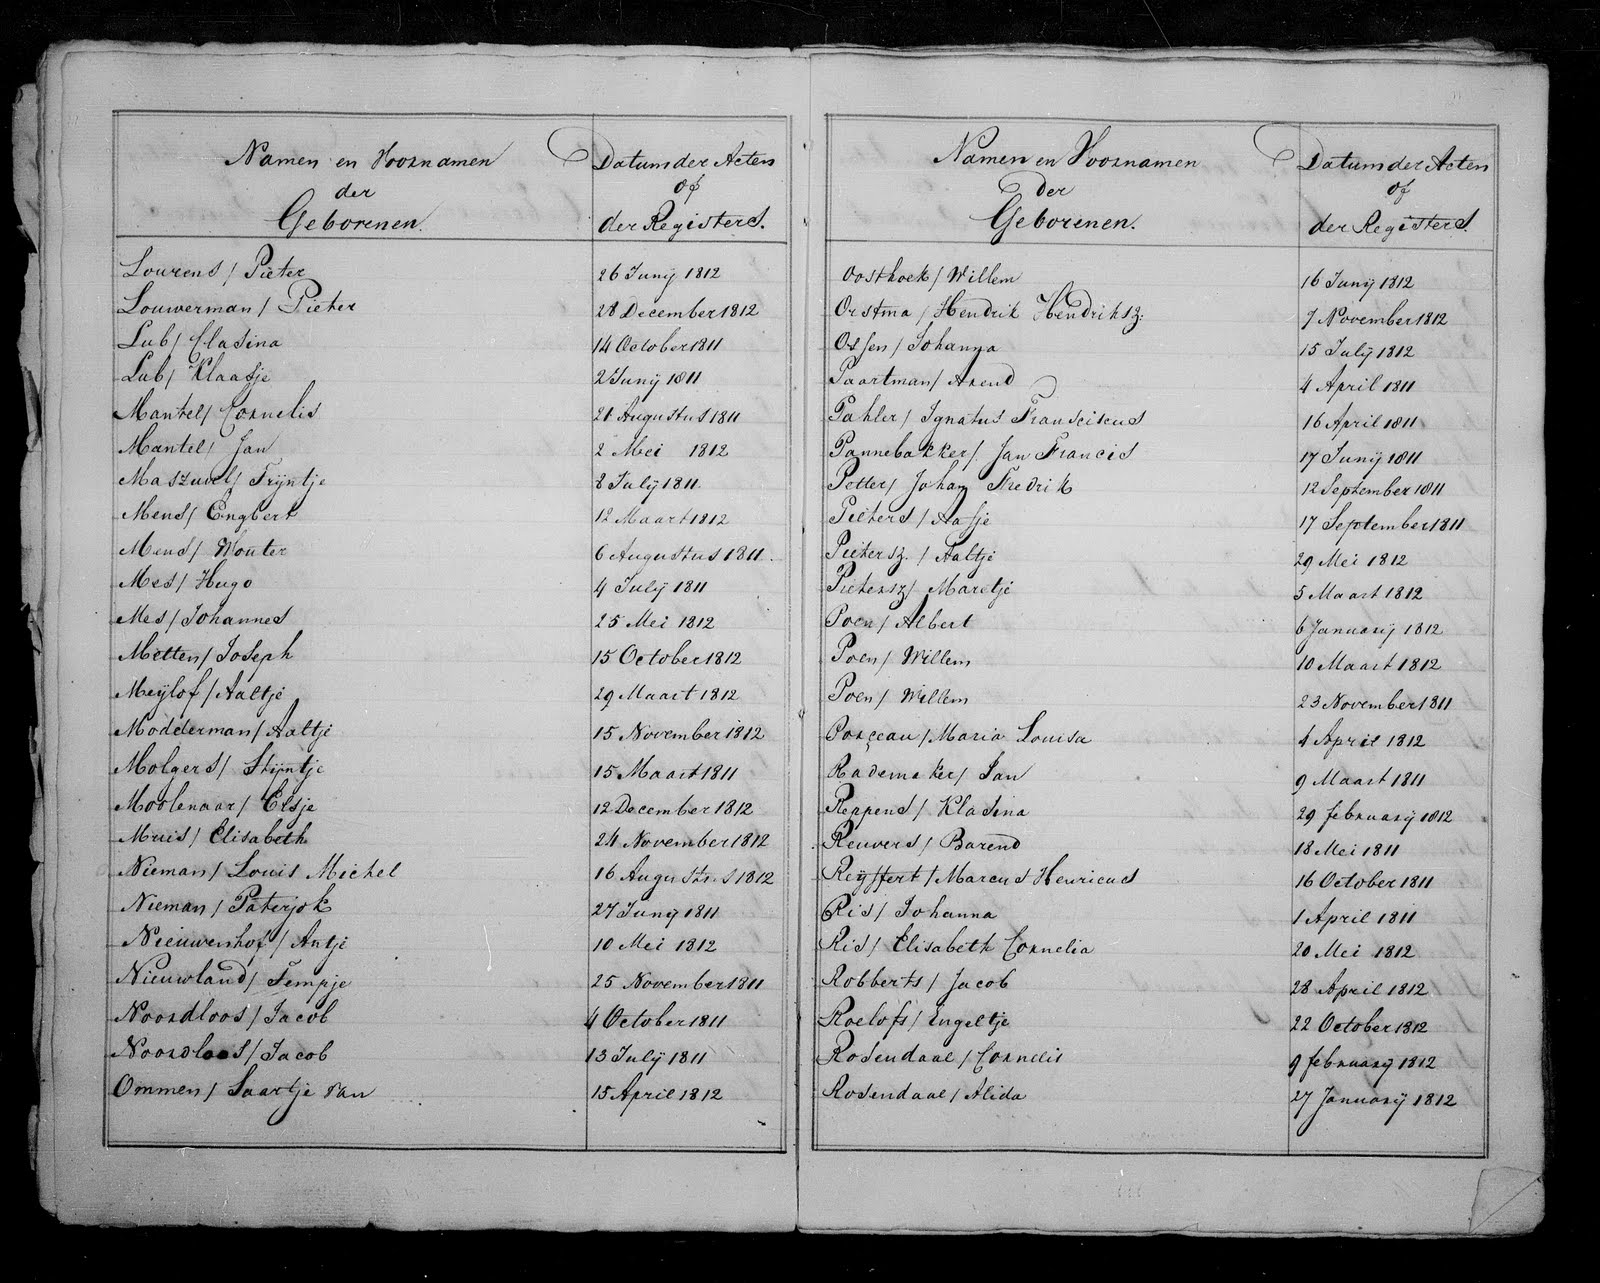 Namen en Voornamen
der
Geborenen.
Datum der Acten
of
der Registers.
Lourens / Pieter 26 Junÿ 1812
Louwerman / Pieter 28 December 1812
Lub / Clasina 14 October 1811
Lub / Klaasje 2 Junÿ 1811
Mantel / Cornelis 21 Augustus 1811
Mantel / Jan 2 Mei 1812
Maszuvel / Trÿntje 8 Julÿ 1811
Mens / Engbert 12 Maart 1812
Mens / Wouter 6 Augustus 1811.
Mes / Hugo 4 Julÿ 1811
Mes / Johannes 25 Mei 1812
Metten / Joseph 15 October 1812
Meÿlof / Aaltje 29 Maart 1812
Modderman / Aaltje 15 November 1812
Molgers / Stÿntje 15 Maart 1811
Moolenaar / Elsje 12 December 1812
Muis / Elisabeth 24 November 1812
Nieman / Louis Michel 16 Augustus 1812
Nieman / Paterjok 27 Junÿ 1811
Nieuwenhof / Antje 10 Mei 1812
Nieuwland / Tempje 25 November 1811
Noordloos / Jacob 4 October 1811
Noordloos / Jacob 13 Julÿ 1811
Ommen / Saartje van 15 April 1812
Namen en Voornamen
der
Geborenen.
Datum der Acten
of
der Registers.
Oosthoek / Willem 16 Junÿ 1812
Orstma / Hendrik Hendriksz: 7 November 1812
Ossen / Johanna 15 Julÿ 1812
Paartman / Arend 4 April 1811
Pahler / Ignatus Franciscus 16 April 1811
Pannebakker / Jan Francis 17 Junÿ 1811
Petter / Johan Fredrik 12 September 1811
Pieters / Aafje 17 September 1811
Pietersz. / Aaltje 29 Mei 1812
Pietersz / Maretje 5 Maart 1812
Poen / Albert 6 Januarÿ 1812
Poen / Willem 10 Maart 1812
Poen / Willem 23 November 1811
Porçeau / Maria Louisa 4 April 1812
Rademaker / Jan 9 Maart 1811
Reppens / Klasina 29 februarÿ 1812
Reuvers / Barend 18 Mei 1811
Reÿffert / Marcus Henricus 16 October 1811
Ris / Johanna 1 April 1811
Ris / Elisabeth Cornelia 20 Mei 1812
Robberts / Jacob 28 April 1812
Roelofs / Engeltje 22 October 1812
Rosendaal / Cornelis 9 februarÿ 1812
Rosendaal / Alida 27 Januarÿ 1812